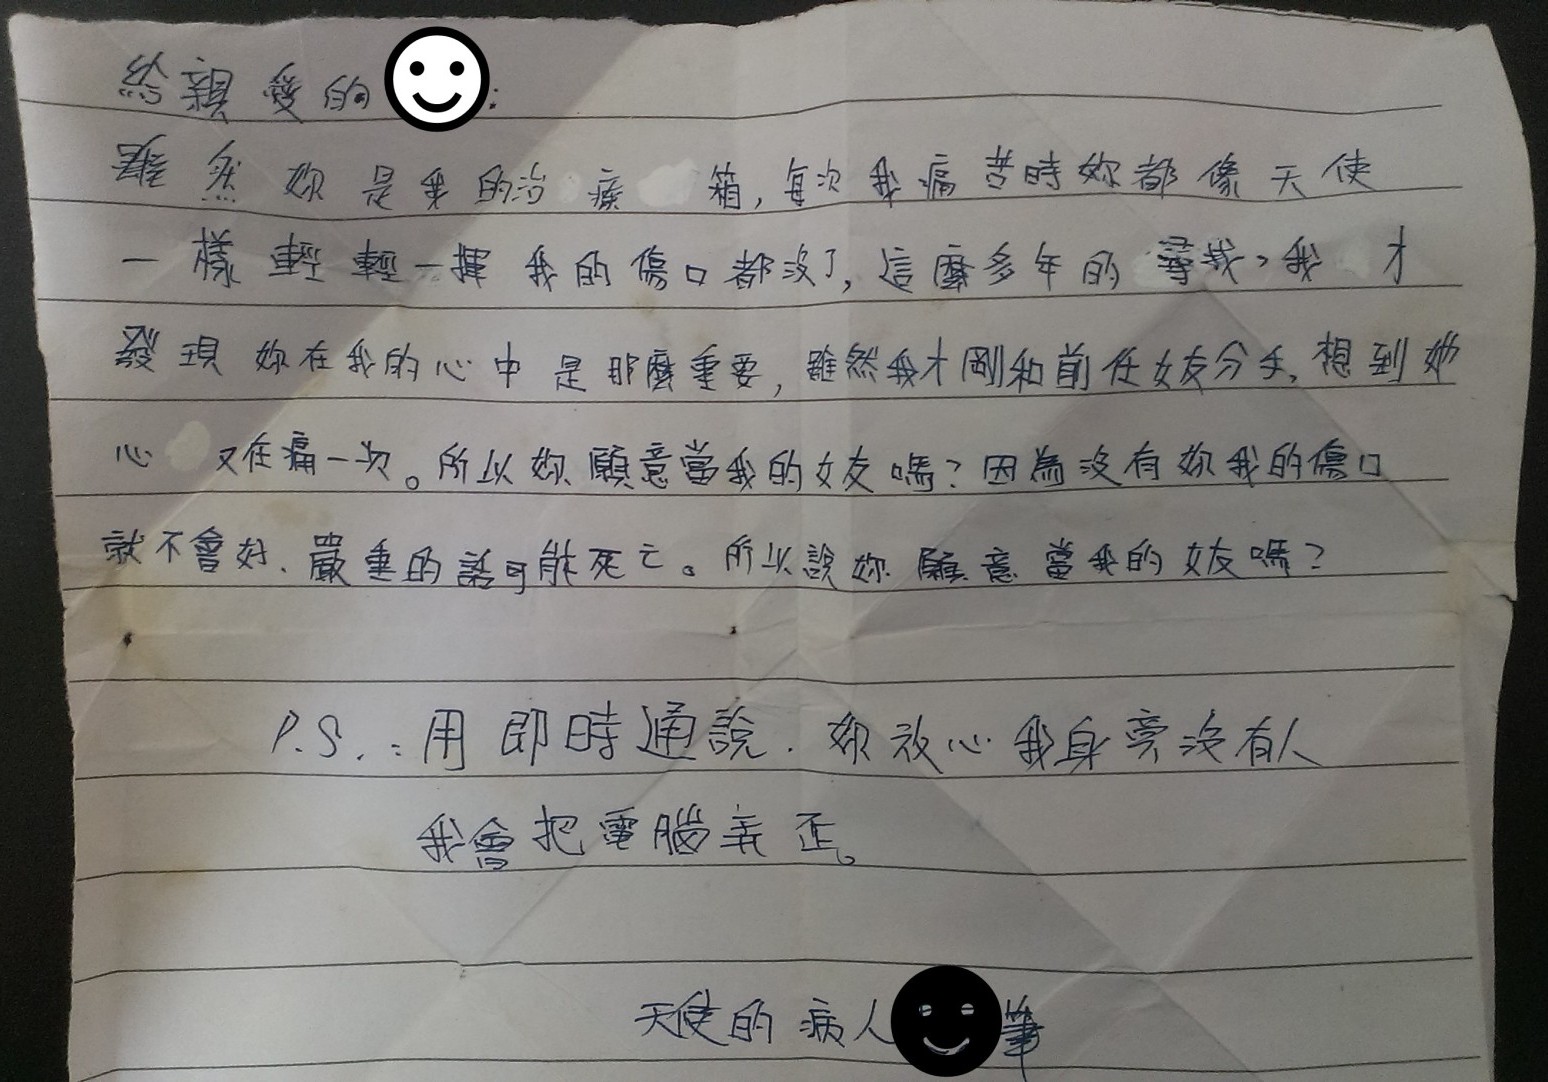 給親愛的 :
雖然妳是我的治療箱,每次我痛苦時妳都像天使
一樣輕輕一揮我的傷口都沒了,這麼多年的尋找,我才
發現妳在我的心中是那麼重要,雖然我才剛和前任女友分手,想到她
心又在痛一次。所以妳願意當我的女友嗎?因為沒有妳我的傷口
就不會好、嚴重的話可能死亡。所以說妳願意當我的女友嗎?
P.S.:用即時通說.妳放心我身旁沒有人
我會把電腦弄歪。
天使的病人 筆